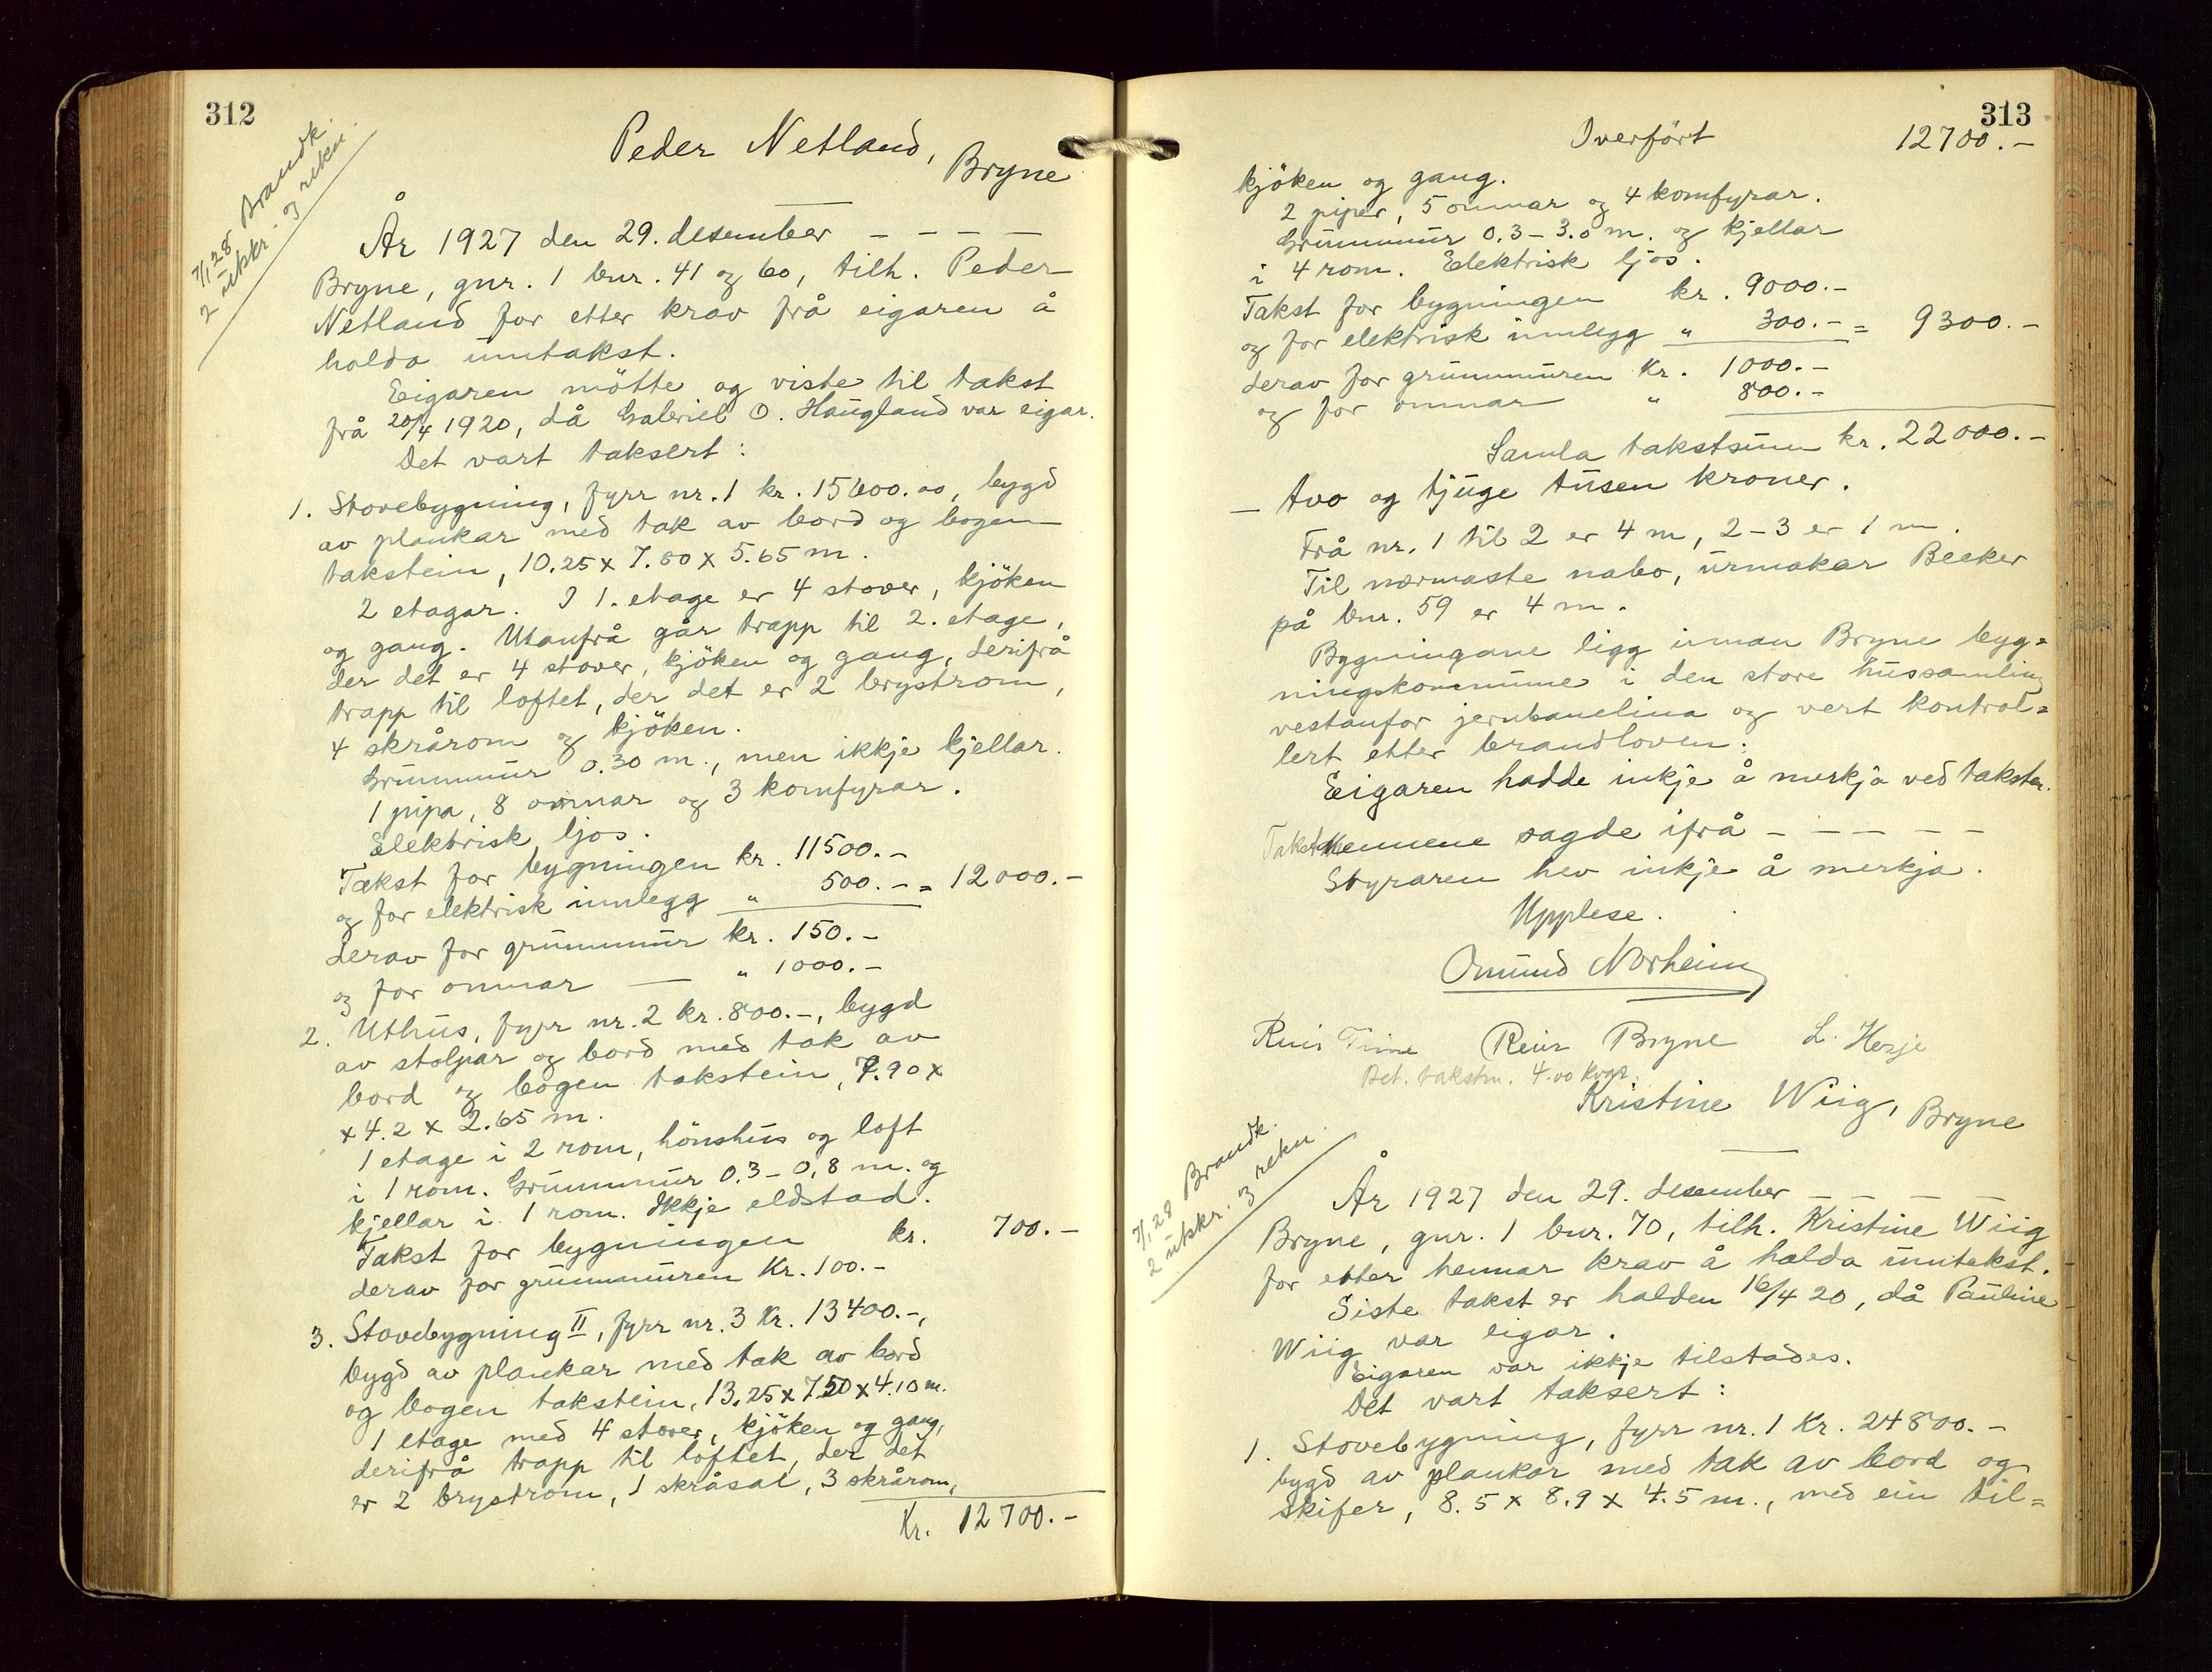 312
7/1 28 Brandk.
2 utskr. og rekn.
Peder Netland,
Bryne
År 1927 den 29. desember - - - -
Bryne, gnr. 1 bnr. 41 og 60, tilh. Peder
Netland for etter krav frå eigaren å
halda umtakst.
Eigaren møtte og viste til takst
frå 20/4 1920, då Gabriel O. Haugland var eigar.
Det vart taksert:
1. Stovebygning, fyrr nr. 1 kr. 15600.00, bygd
av plankar med tak av bord og bogen
takstein, 10.25 x 7.50 x 5.65 m.
2 etagar. I 1. etage er 4 stover, kjöken
og gang. Utanfrå går trapp til 2. etage,
der det er 4 stover, kjöken og gang, derifrå
trapp til loftet, der det er 2 brystrom,
4 skrårom og kjöken.
Grunnmur 0.30 m., men ikkje kjellar.
1 pipa, 8 omnar og 3 komfyrar.
Elektrisk ljos.
Takst for bygningen kr. 11500.-
og for elektrisk innlegg " 500.- = 12000.-
derav for grunnmur kr. 150.-
og for omnar — " 1000.-
2. Uthus, fyrr nr. 2 kr. 800.-, bygd
av stolpar og bord med tak av
bord og bogen takstein, 7.90 x
x 4.2 x 2.65 m.
1 etage i 2 rom, hönshus og loft
i 1 rom. Grunnmur 0.3 - 0,8 m. og
kjellar i 1 rom. Ikkje eldstad.
Takst for bygningen kr. 700.-
derav for grunnmuren Kr. 100.-
3. Stovebygning II, fyrr nr. 3 Kr. 13400.-,
bygd av plankar med tak av bord
og bogen takstein, 13.25 x 7.50 x 4.10 m.
1 etage med 4 stover, kjöken og gang,
derifrå trapp til loftet, der det
er 2 brystrom, 1 skråsal, 3 skrårom,
Kr. 12700.-
313
Overfört 12700.-
kjöken og gang.
2 piper, 5 omnar og 4 komfyrar.
Grunnmur 0.3 - 3.0 m. og kjellar
i 4 rom. Elektrisk ljos.
Takst for bygningen kr. 9000.-
og for elektrisk innlegg " 300.- = 9300.-
derav for grunnmuren Kr. 1000.-
og for omnar " 800.-
Samla takstsum kr. 22000.-
- tvo og tjuge tusen kroner.
Frå nr. 1 til 2 er 4 m, 2-3 er 1 m.
Til nærmaste nabo, urmakar Becker
på bnr. 59 er 4 m.
Bygningane ligg innan Bryne byg=
ningskommune i den store hussamling
vestanfor jernbanelina og vert kontrol=
lert etter brandloven.
Eigaren hadde inkje å merkja ved taksten.
Takstmennene sagde ifrå - - - - -
Styraren hev inkje å merkja.
Upplese.
Omund Norheim
Reier Time Reier Bryne L. Herje
Bet. takstm. 4.00 kvar.
Kristine Wiig, Bryne
7/1 28 Brandk.
2 utskr. 3 rekn.
År 1927 den 29. desember - - - -
Bryne, gnr. 1 bnr. 70, tilh. Kristine Wiig
for etter hennar krav å halda umtakst.
Siste takst er halden 16/4 20, då Pauline
Wiig var eigar.
Eigaren var ikkje tilstades.
Det vart taksert:
1. Stovebygning, fyrr nr. 1 Kr. 24800.-
bygd av plankar med tak av bord og
skifer, 8.5 x 8.9 x 4.5 m., med ein til=